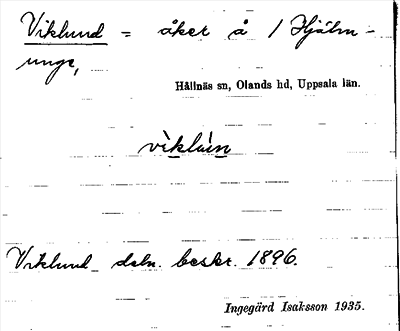 Viklund = åker å / Hjälm-
unge,
Hållnäs sn, Olands hd, Uppsala län.
vìkluin
Viklund deln. beskr. 1896.
Ingegärd Isaksson 1935.